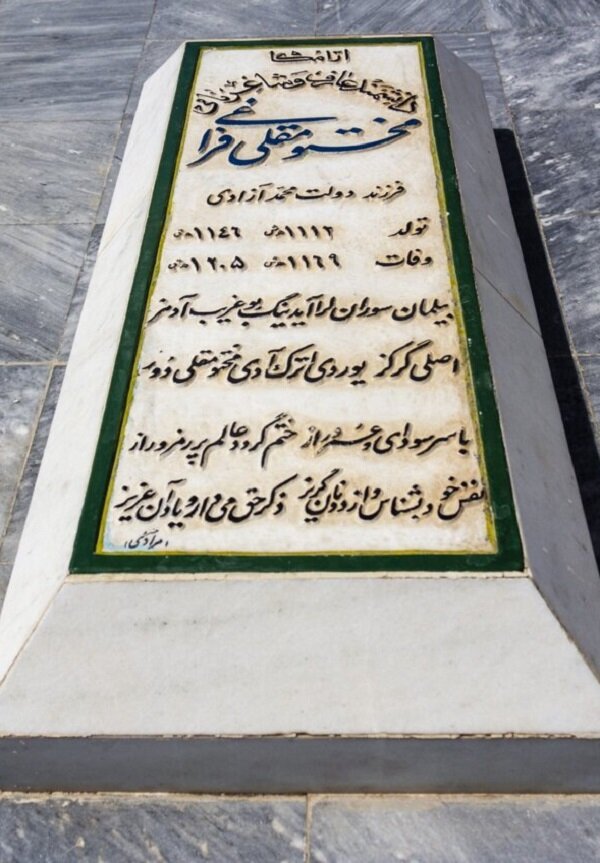 آرامگاه
دانشمند عارف و شاعر
مختومقلی فراغی
فرزند دولت محمد آزادی
تولد ۱۱۱۲ ه‍.ش ۱۱۴۶ ه‍.ق
وفات ۱۱۶۹ ه‍.ش ۱۲۰۵ ه‍.ق
بیلمان سوران لرا آیدینگ بو غریب آدمنز
اصلی گرکز یوردی اترک آدی مختومقلی دور
با سر سودای و از ختم گردد عالم پر رمز و راز
نفس خود بشناس و از دو نان گریز ذکر حق می دار و یاد آن عزیز